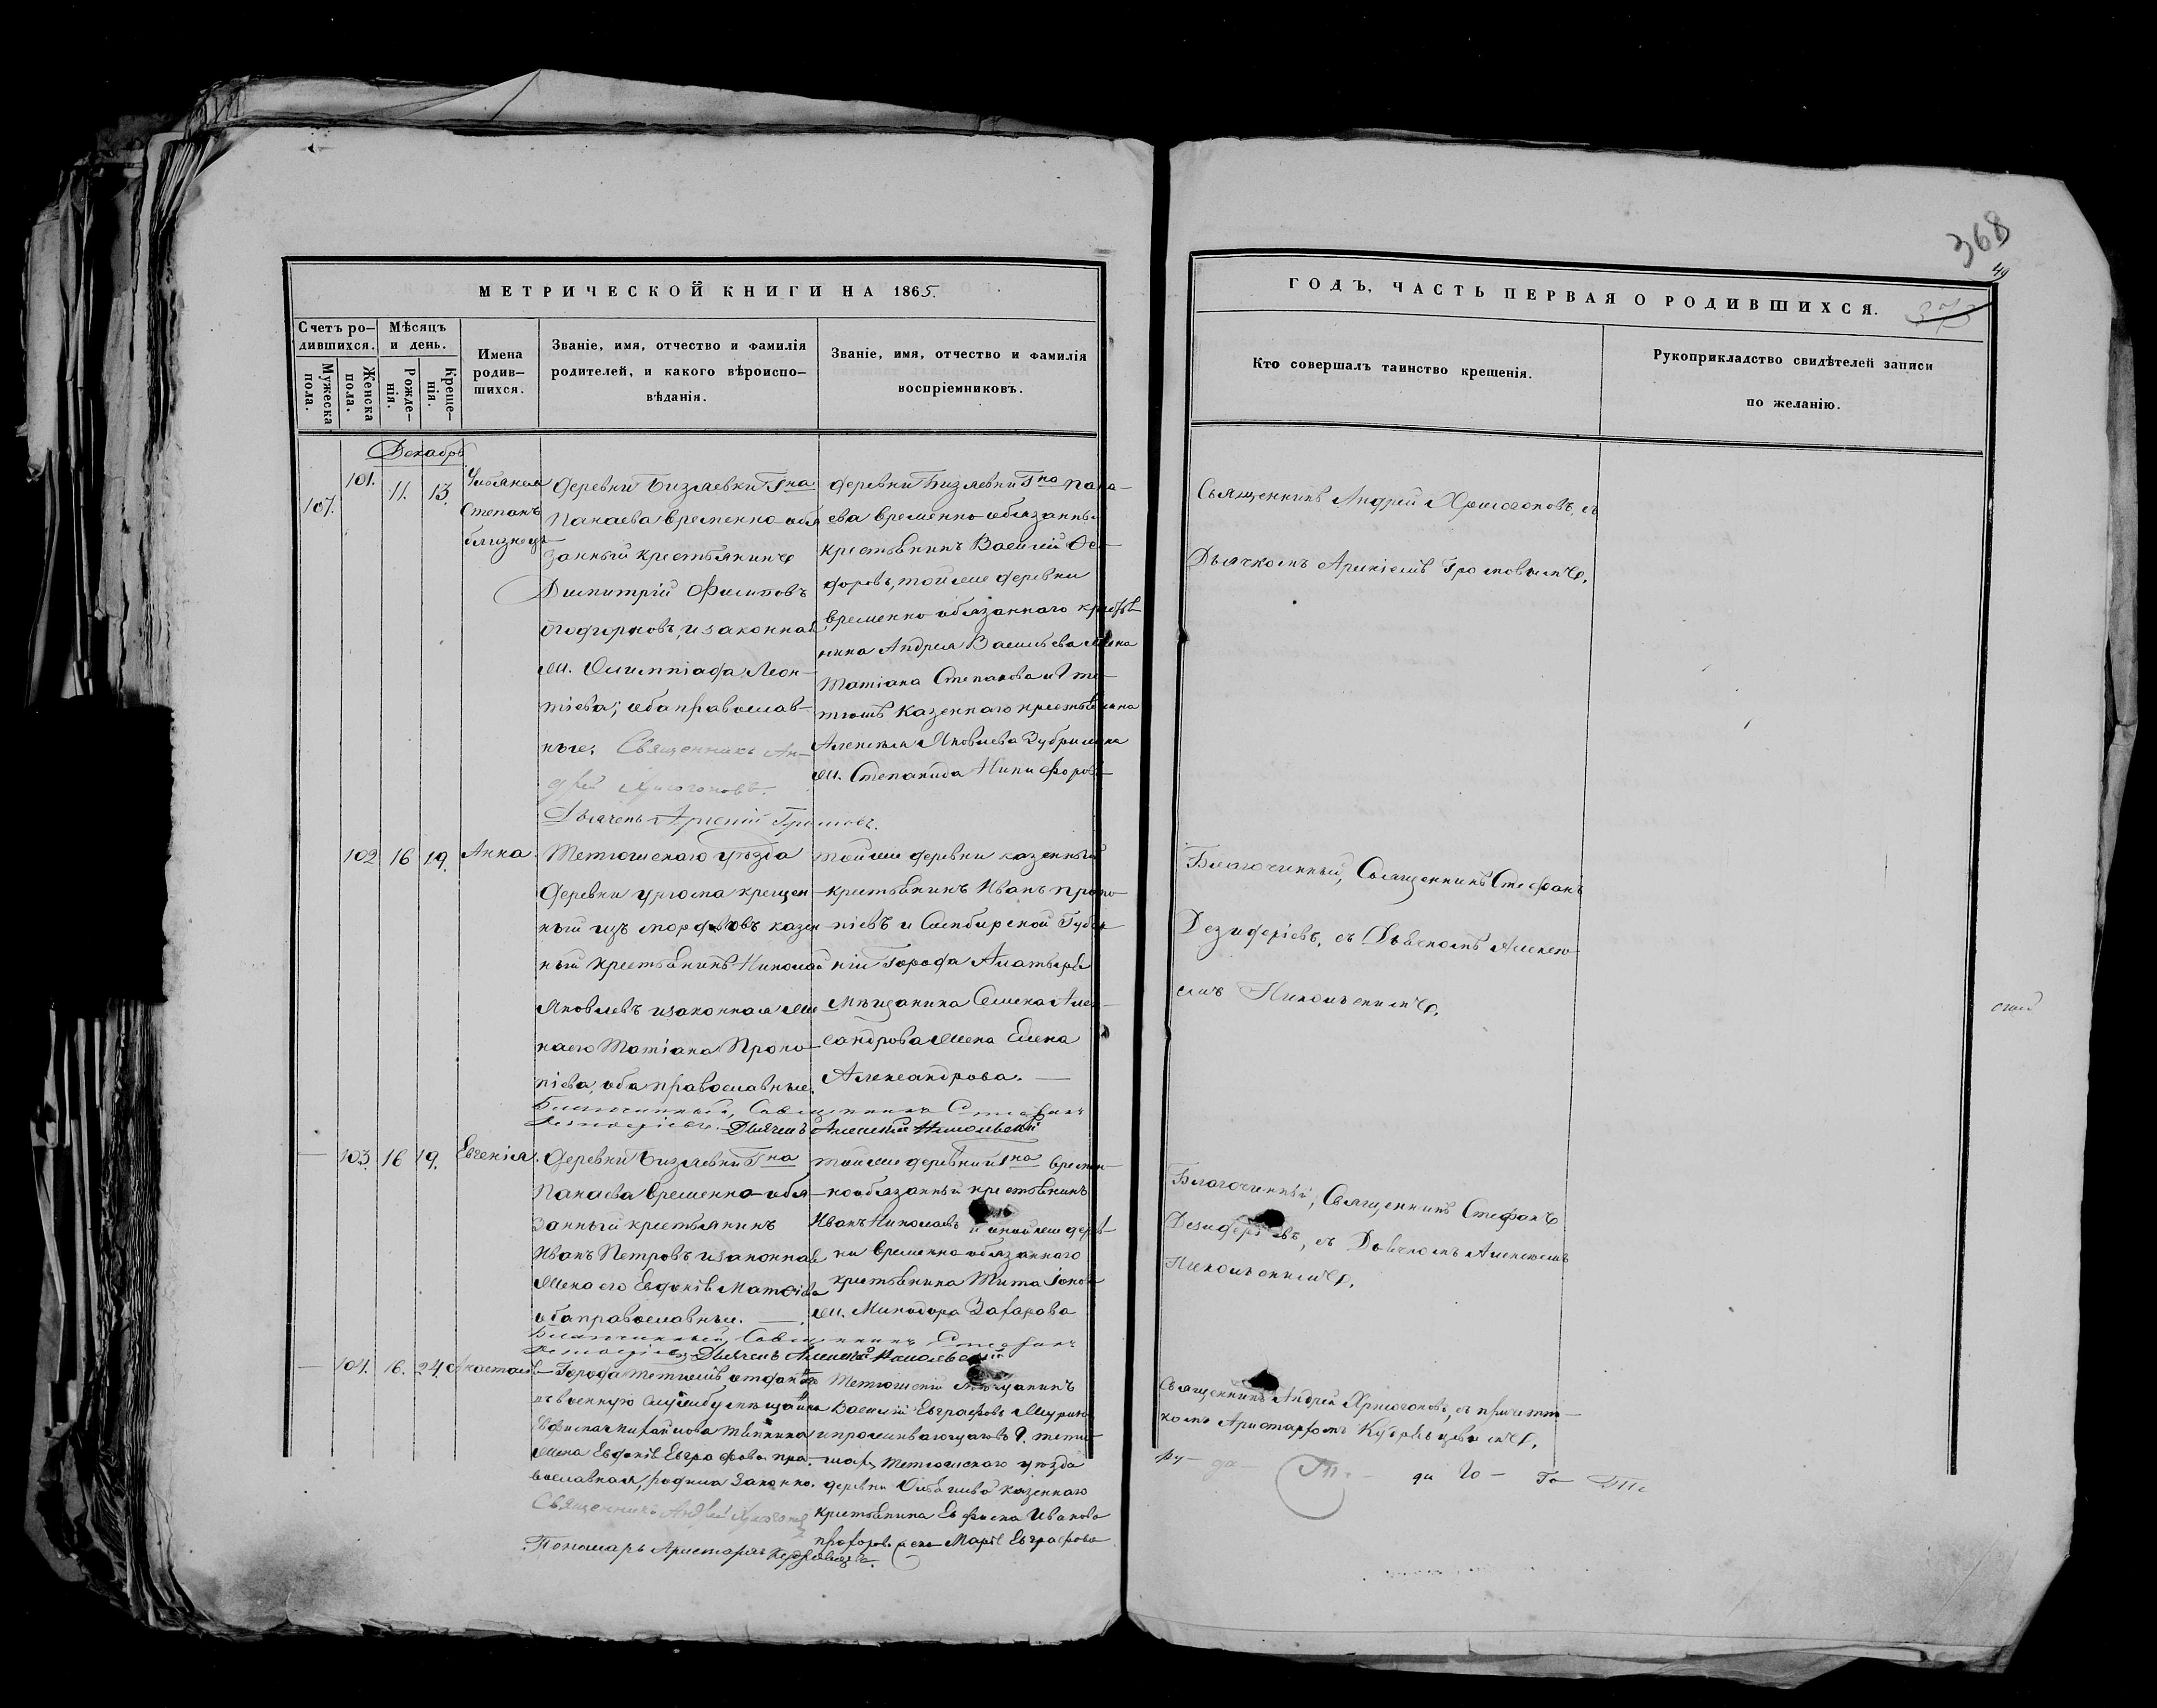 368
49
373
МЕТРИЧЕСКОЙ КНИГИ НА 1865.
Счетъ родившихся.
Мужеска пола.
Женска пола.
Мѣсяцъ и день.
Рожденія.
Крещенія.
Имена родившихся.
Званіе, имя, отчество и фамилія
родителей, и какого вѣроиспо-
вѣданія.
Званіе, имя, отчество и фамилія
воспріемниковъ.
ГОДЪ, ЧАСТЬ ПЕРВАЯ О РОДИВШИХСЯ.
Кто совершалъ таинство крещенія.
Рукоприкладство свидѣтелей записи
по желанію.
Декабрь
107. 101. 11. 13.
Степанъ
близнецъ
Деревни Бизяевки Гна
Панаева временно-обя
занный крестьянинъ
Димитрій Филиповъ
и законная
ж. Олимпіада Леон-
тіева; оба православ-
ные. Священникъ Ан-
дрей Хрисогоновъ.
Дьячекъ Арсеній Громовъ.
деревни Бизяевки Гна Пана-
ева временно обязанный
крестьянинъ Василій Ѳе-
доровъ, той же деревни
временно обязаннаго крестья
нина Андрея Васильева жена
Татіана Степанова и г. те-
тюшъ казеннаго крестьянина
Алексѣя Яковлева
ж. Степанида Никифорова
Священникъ Андрей Хрисогоновъ, съ
Дьячкомъ Арсеніемъ Громовымъ.
102 16 19. Анна.
Тетюшскаго уѣзда
деревни Урюма крещен
ный изъ мордвовъ казен
ный крестьянинъ Николай
Яковлевъ и законная же
на его Татіана Проко-
піева, оба православные.
Благочинный, Священникъ Стефанъ
Дезидеріевъ. Дьячекъ Алексѣй Никольскій
той же деревни казенный
крестьянинъ Иванъ Проко-
піевъ и Симбирской Губер
ніи города Алатыря
мѣщанина Семена Алек-
сандрова жена Елена
Александрова.
Благочинный, Священникъ Стефанъ
Дезидеріевъ, съ Дьячкомъ Алексѣ-
емъ Никольскимъ.
103. 16 19. Евгенія.
Деревни Бизяевки Гна
Панаева временно-обя
занный крестьянинъ
Иванъ Петровъ и законная
жена его Евдокія Матѳѣева
оба православные.
Благочинный, Священникъ Стефанъ
Дезидеріевъ, Дьячекъ Алексѣй Никольскій
той же деревни Гна времен-
нообязанный крестьянинъ
Иванъ Николаевъ и той же дерев-
ни временно обязаннаго
крестьянина Тита Іонова
ж. Минодора Захарова
Благочинный, Священникъ Стефанъ
Дезидеріевъ, съ Дьячкомъ Алексѣемъ
Никольскимъ.
104. 16. 24. Анастасія
Города Тетюшъ отданнаго
въ военную службу мѣщанина
жена Евдокія Евграфова пра-
вославная, родила законно.
Священникъ Андрей Хрисогоновъ
Пономарь Аристархъ Кудрявцевъ.
Тетюшскій мѣщанинъ
Василій Евграфовъ
и проживающаго въ г. тетю-
шахъ Тетюшскаго уѣзда
деревни казеннаго
крестьянина Иванова
жена Марія Евграфова
Священникъ Андрей Хрисогоновъ, съ причетни-
комъ Аристархомъ Кудрявцевымъ.